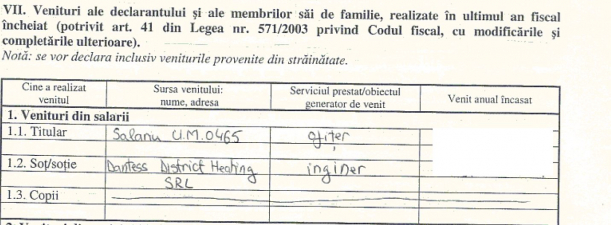 VII. Venituri ale declarantului şi ale membrilor săi de familie, realizate în ultimul an fiscal
încheiat (potrivit art. 41 din Legea nr. 571/2003 privind Codul fiscal, cu modificările şi
completările ulterioare).
Notă: se vor declara inclusiv veniturile provenite din străinătate.
Cine a realizat venitul
Sursa venitului: nume, adresa
Serviciul prestat/obiectul generator de venit
Venit anual încasat
1. Venituri din salarii
1.1. Titular U.M. 0465 ofiţer
1.2. Soţ/soţie Dantess District Heating inginer
SRL
1.3. Copii